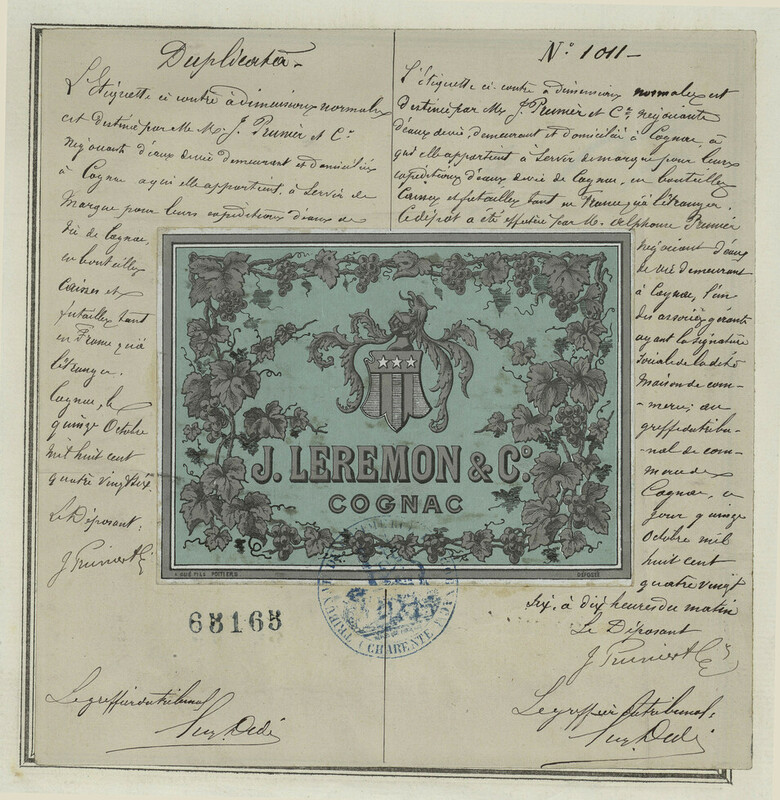 Duplicata
L'Etiquette ci contre à dimensions normales
est destinée par M. M. J. Prunier et Cie
négociants d'eaux de vie demeurant et domiciliés
à Cognac a qui elle appartient, à Servir de
Marque pour leurs expéditions d'eaux de
Vie de Cognac,
en bouteilles
Caisses et
futailles tant
en France qu'à
l'étranger.
Cognac, le
quinze Octobre
mil huit cent
quatre vingt six
Le Déposant:
J. Prunier & Cie
N° 1011
L'Etiquette ci contre à dimensions normales est
destinée par MM. J. Prunier et Cie, négociants
d'eaux de vie, demeurant et domiciliés à Cognac, à
qui elle appartient à Servir de marque pour leurs
expéditions d'eaux de vie de Cognac, en bouteilles
Caisses et futailles tant en France qu'à l'étranger.
Ce dépôt a été effectué par M. Alphonse Prunier
Négociant d'eaux
de vie demeurant
à Cognac, l'un
des associés gérants
ayant la signature
sociale de la dite
Maison de com-
merce, au
greffe du tribu-
nal de com-
merce de
Cognac, ce
jour quinze
Octobre mil
huit cent
quatre vingt
six, à dix heures du matin
Le Déposant
J. Prunier & Cie
J. LEREMON & Co.
COGNAC
POITIERS
DÉPOSÉ
(CHARENTE)
65165
Le greffier du tribunal
Le greffier du tribunal: